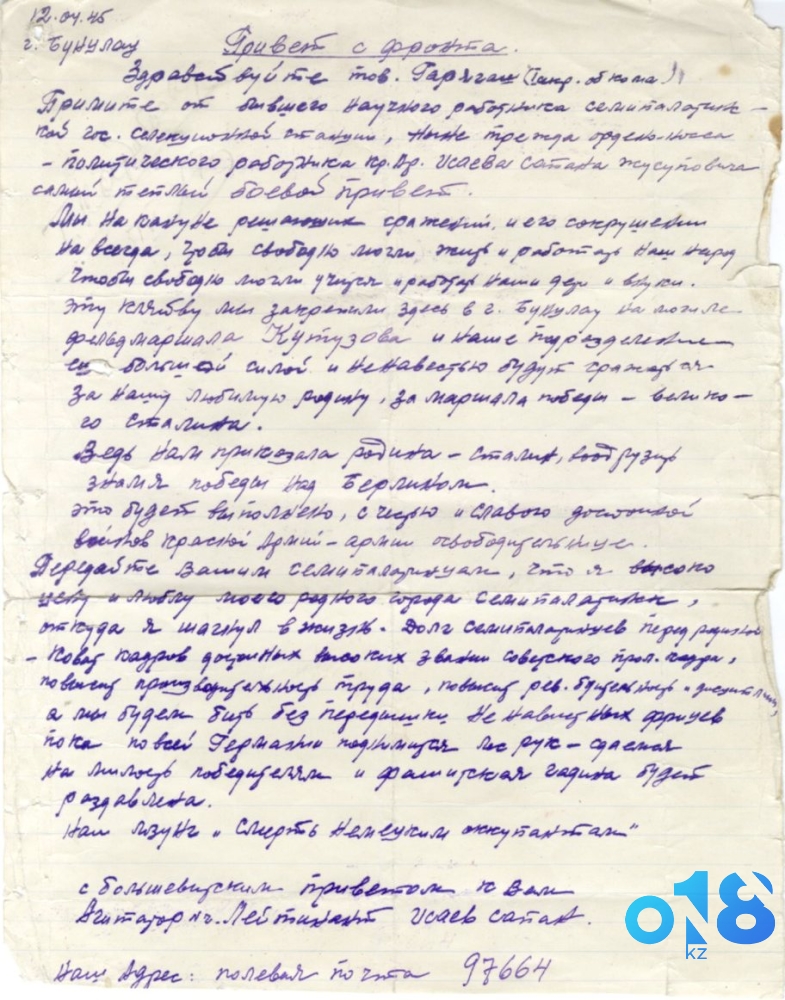 12.04.45
г. Бунулау
Привет с фронта.
Здравствуйте тов. (секр. обкома)
Примите от бывшего научного работника семипалатинс-
кой гос. селекционной станции, ныне трежда орденоносца
- политического работника кр. Ар. Исаева Сапана Жусуповича
самый теплый боевой привет.
Мы на кануне решающих сражений, и его сокрушении
на всегда, чтобы свободно могли жить и работать наш народ
чтобы свободно могли учится и работать наши дети и внуки.
Эту клятву мы закрепили здесь в г. Бунулау на могиле
фельдмаршала Кутузова и наше подразделение
с большой силой и ненавестью будут сражаться
за нашу любимую родину, за маршала победы - велико-
го Сталина.
Ведь нам приказала родина - Сталин, водрузить
знамя победы над Берлином.
Это будет выполнено, с честью и славого достойной
войнов красной Армий - армии освободительнице.
Передайте Вашим семипалатинцам, что я высоко
ценю и люблю моего родного города Семипалатинск,
откуда я шагнул в жизнь. Долг семипалатинцев перед родиной
- Ковать кадров достойных высоких звании советского
повысить производительность труда, повысить рев. бдительность и
а мы будем бить без передышки ненавистных фрицев
пока по всей Германии поднимится лес рук - сдаемся
на милость победителям и фашистская гадина будет
раздавлена.
Наш лозунг „Смерть немецким оккупантам"
с большевитским приветом к Вам
Агитатор Лейтинант Исаев Сапан.
Наш Адрес: полевая почта 97664
018
kz